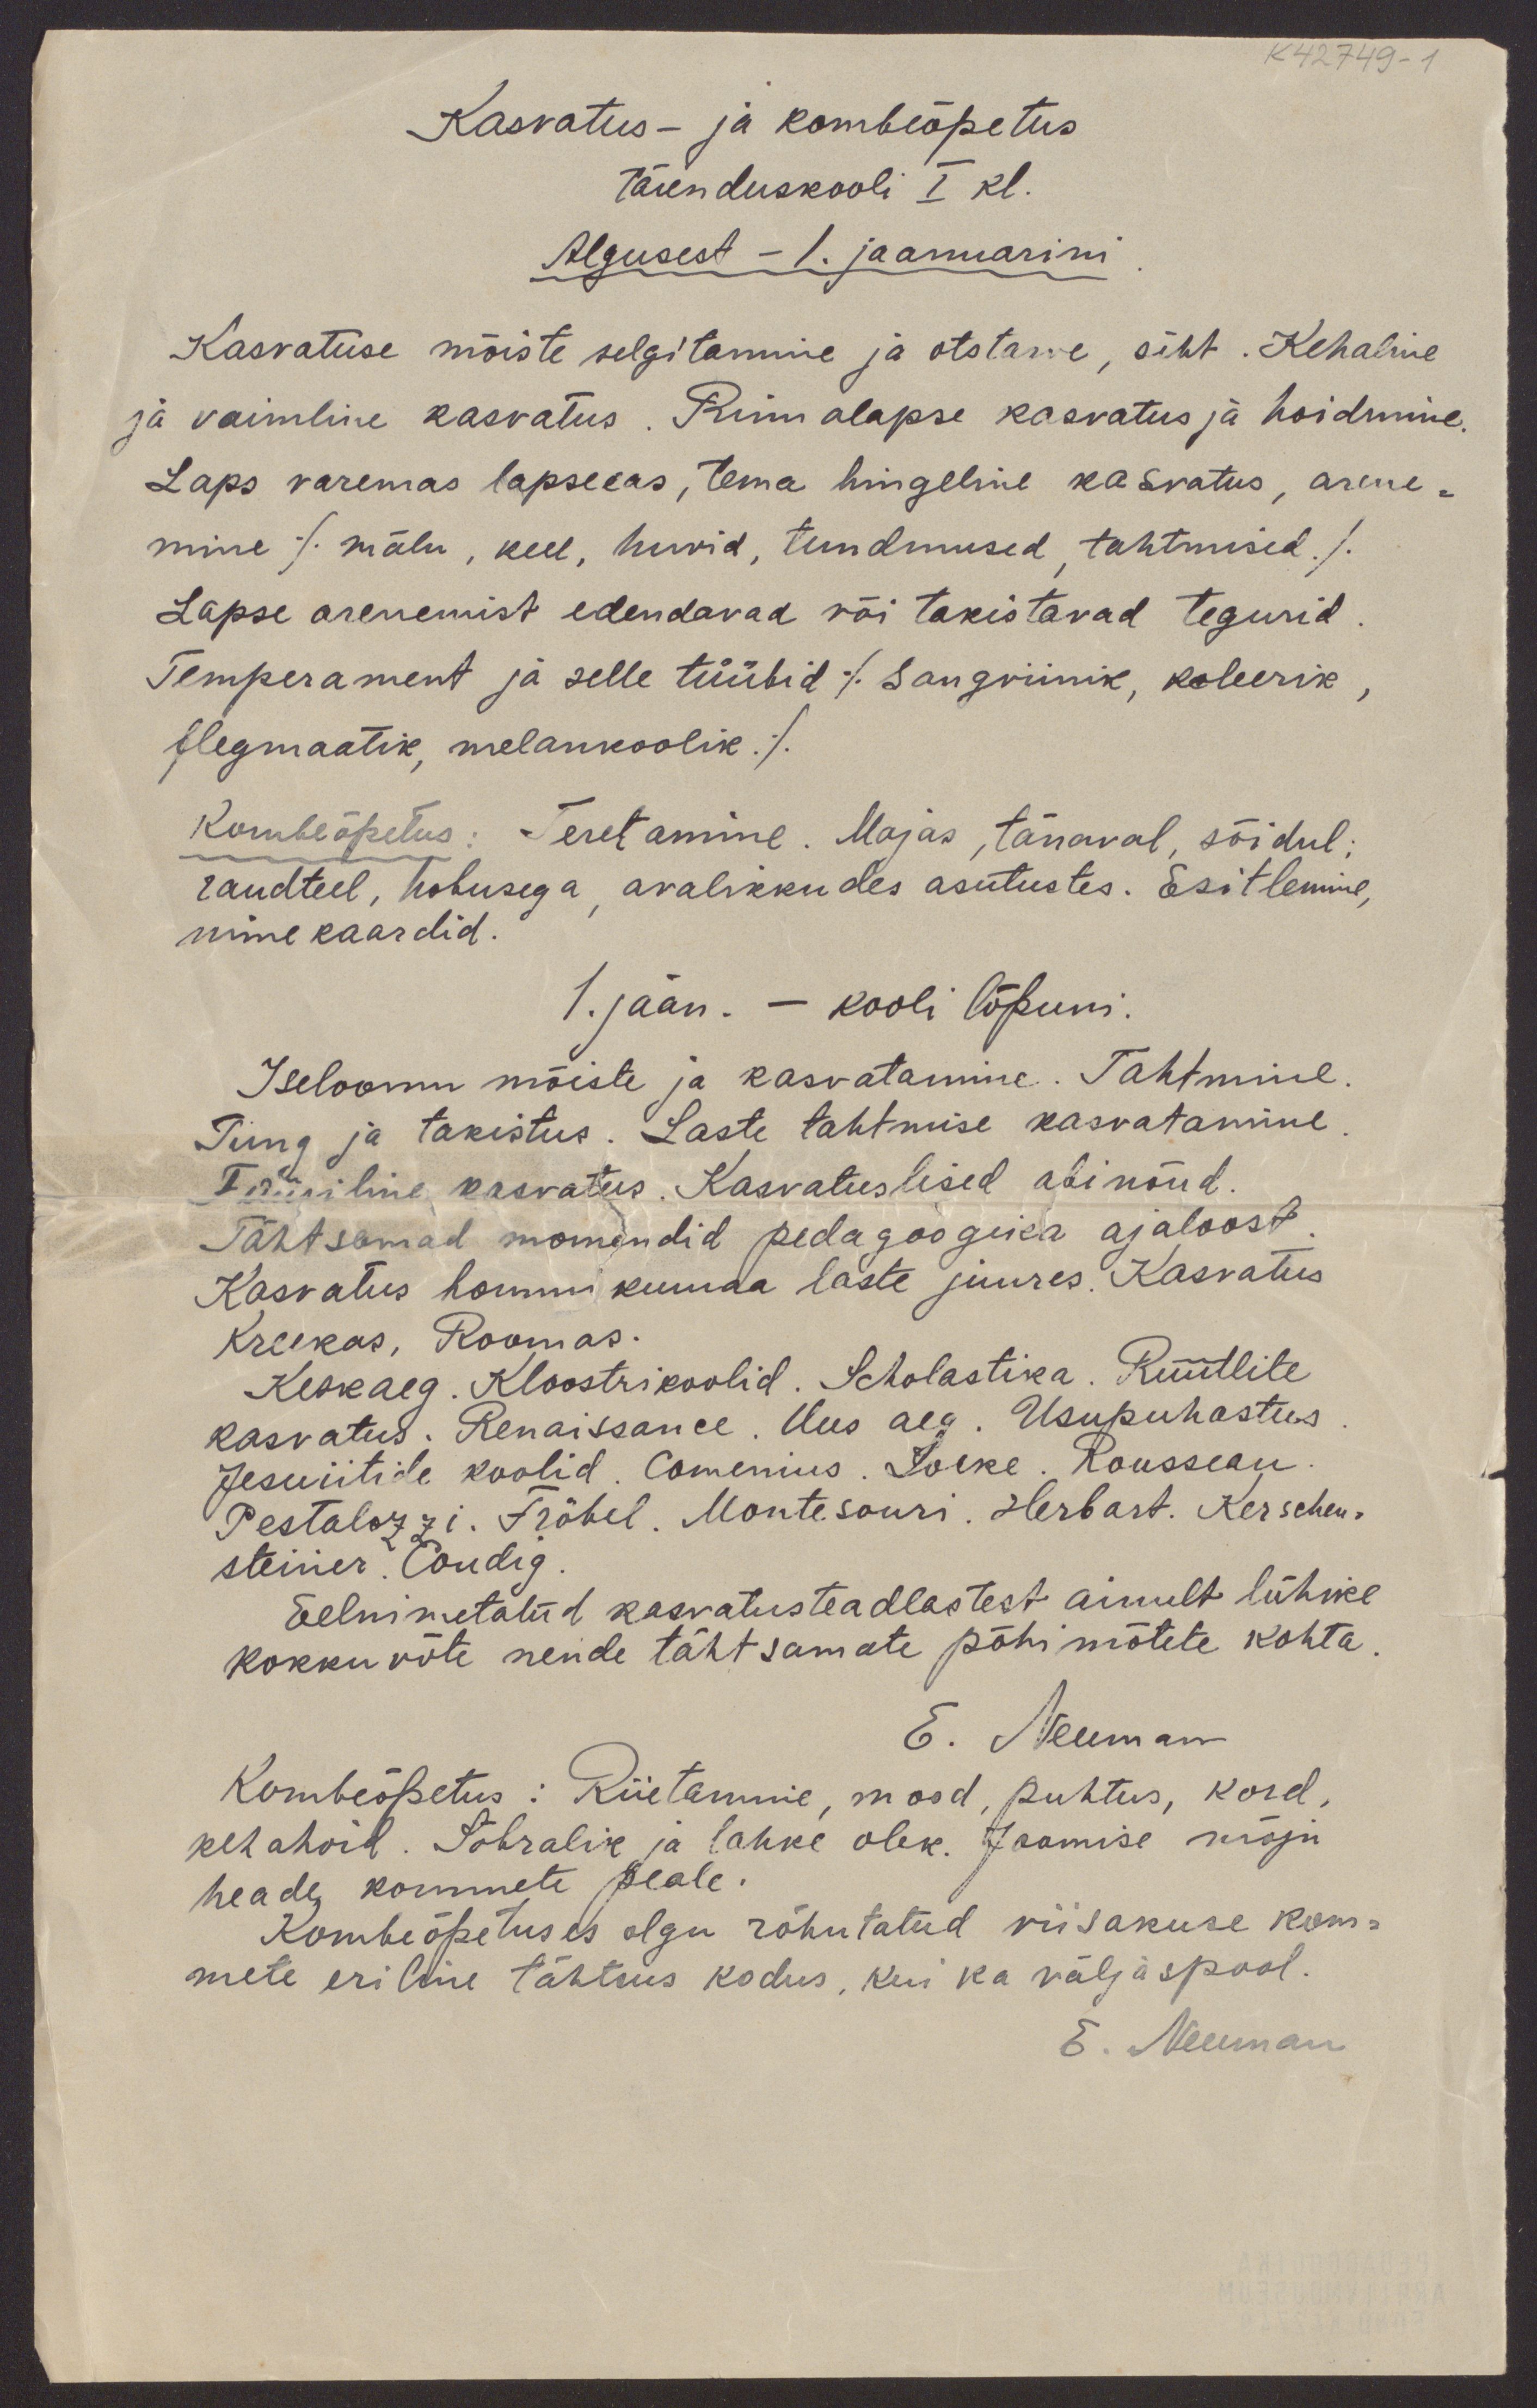 K42749-1
Kasvatus- ja kombeõpetus
Täienduskooli I kl.
Algusest - 1. jaanuarini.
Kasvatuse mõiste selgitamine ja otstarve, siht. Kehaline
ja vaimline kasvatus. Rinnalapse kasvatus ja hoidmine.
Laps varemas lapseeas, tema hingeline kasvatus, arene=
mine ./. mälu, keel, huvid, tundmused, tahtmised ./.
Lapse arenemist edendavad või takistavad tegurid.
Temperament ja selle tüübid ./. Sangviinik, koleerik,
flegmaatik, melankoolik ./.
Kombeõpetus: Teretamine. Majas, tänaval, sõidul;
raudteel, hobusega, avalikkudes asutustes. Esitlemine,
nimekaardid.
1. jaan. - kooli lõpuni.
Iseloomu mõiste ja kasvatamine. Tahtmine.
Tung ja takistus. Laste tahtmise kasvatamine.
kasvatus. Kasvatuslised abinõud.
Tähtsamad momendid pedagoogika ajaloost.
Kasvatus hommikumaa laste juures. Kasvatus
Kreekas, Roomas.
Keskaeg. Kloostrikoolid. Scholastika. Rüütlite
kasvatus. Renaissance. Uus aeg. Usupuhastus.
Jesuiitide koolid. Comenius. Locke. Rousseau.
Pestalozzi. Fröbel. Montesouri. Herbart. Kerschen=
steiner. Coudig.
Eelnimetatud kasvatusteadlastest ainult lühike
kokkuvõte nende tähtsamate põhimõtete kohta.
E. Neuman
Kombeõpetus: Riietamine, mood, puhtus, kord,
kehahoid. Sõbralik ja lahke olek. Joomise mõju
heade kommete peale.
Kombeõpetuses olgu rõhutatud viisakuse kom=
mete eriline tähtsus kodus, kui ka väljaspool.
E. Neuman